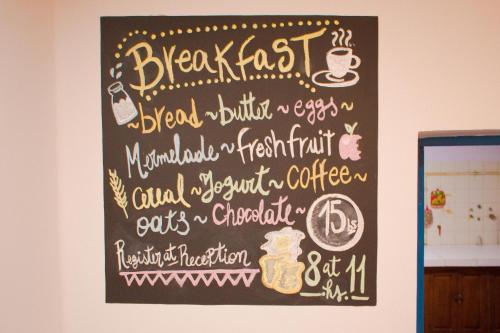 Breakfast
~bread~butter~eggs~
Mermelade~fresh fruit
cereal~Yogurt~Coffee~
oats~Chocolate~
15 Ls
Register at Reception
8 at 11
hs.